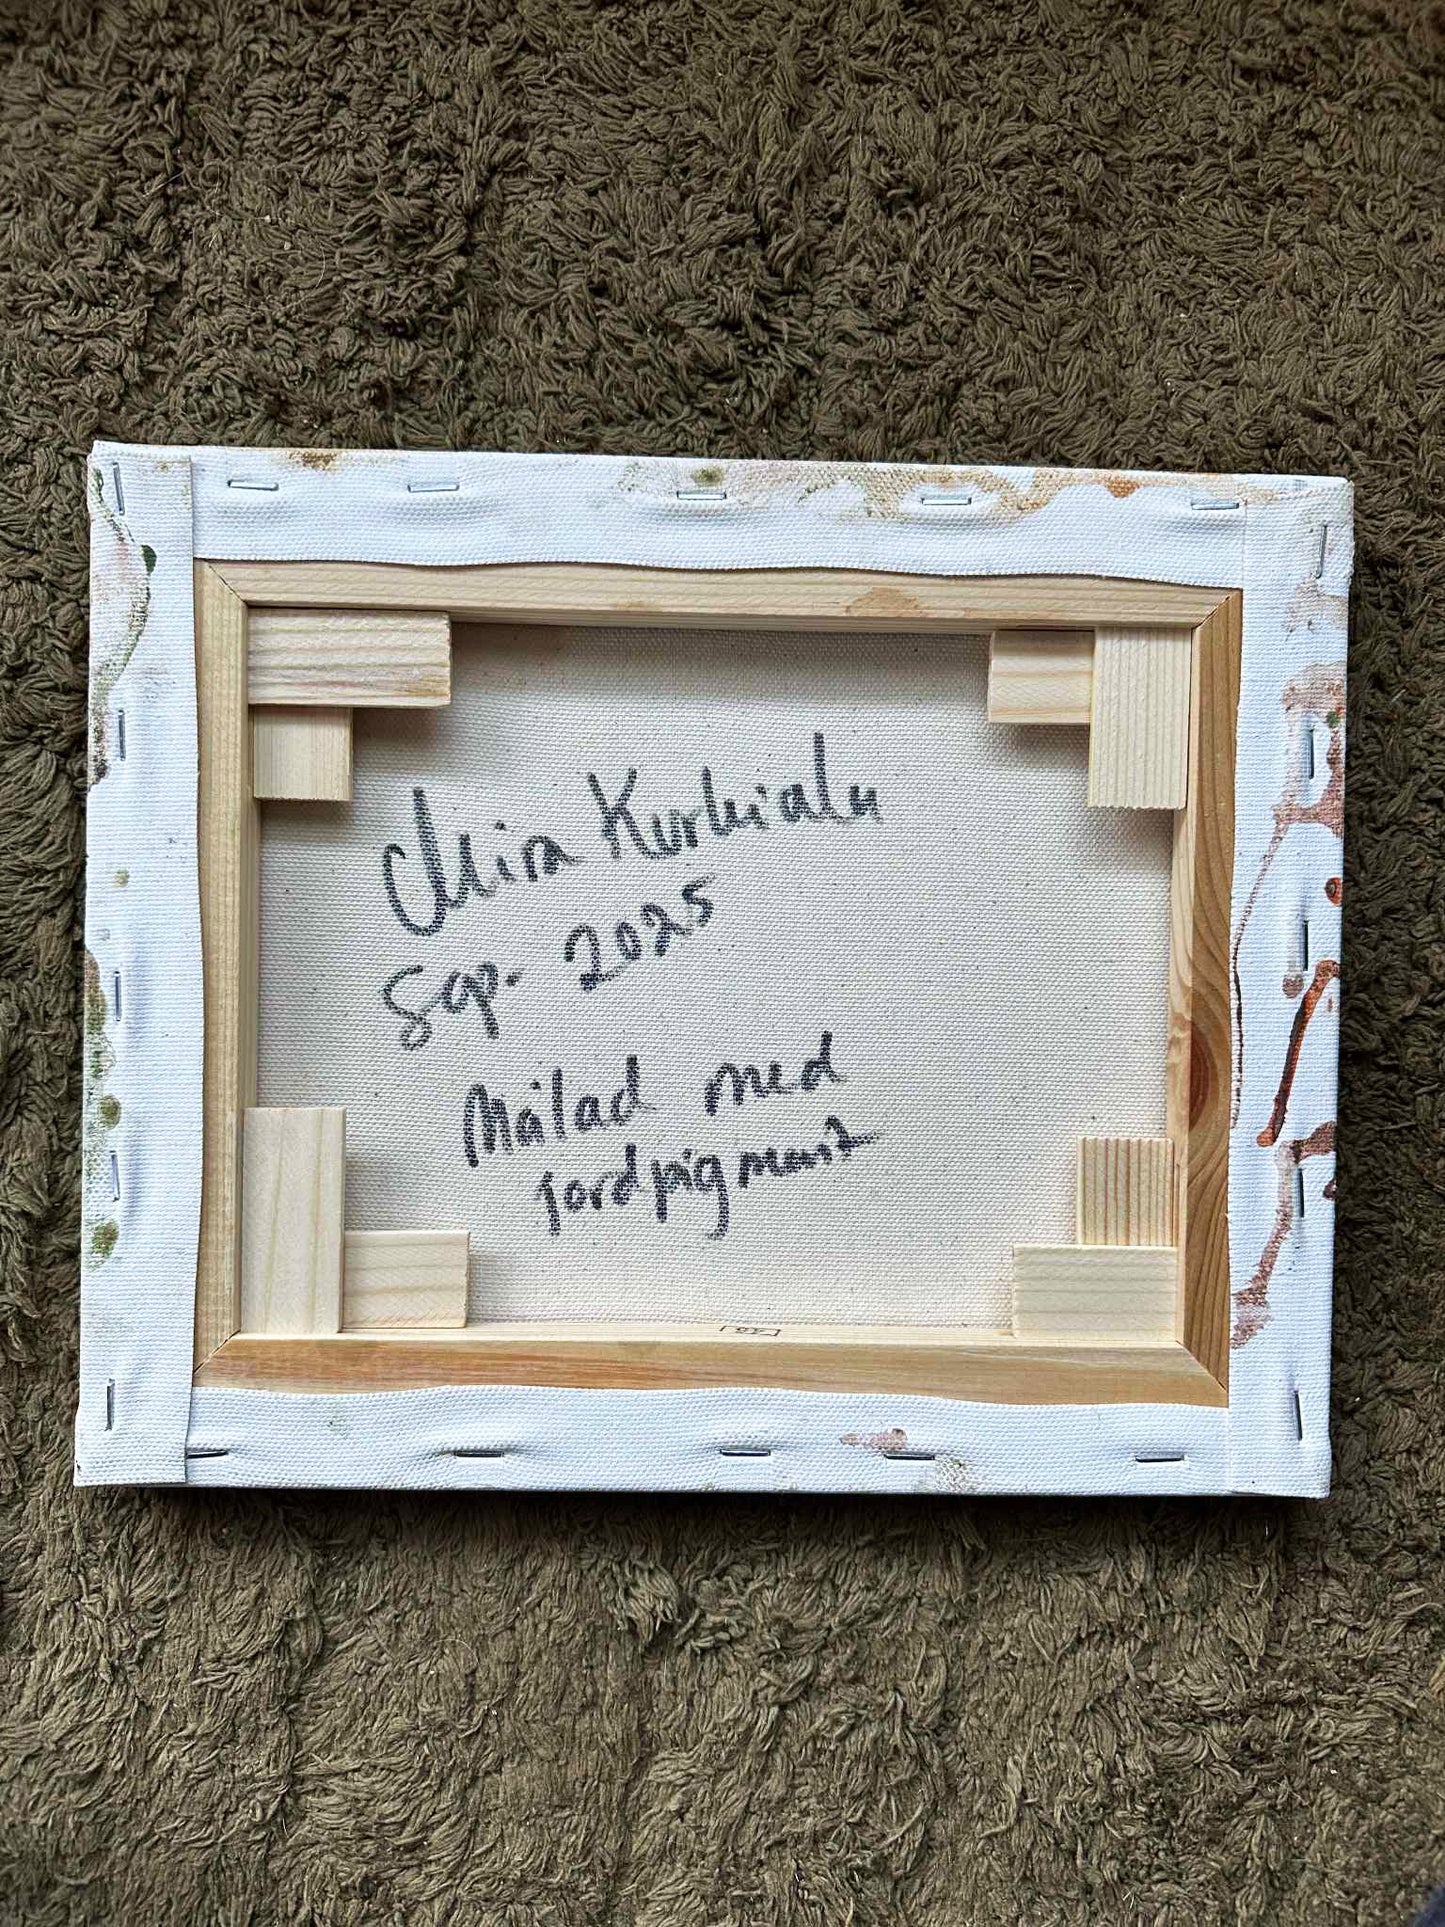 Mira Kurhialu
Sep. 2025
Målad med
jordpigment